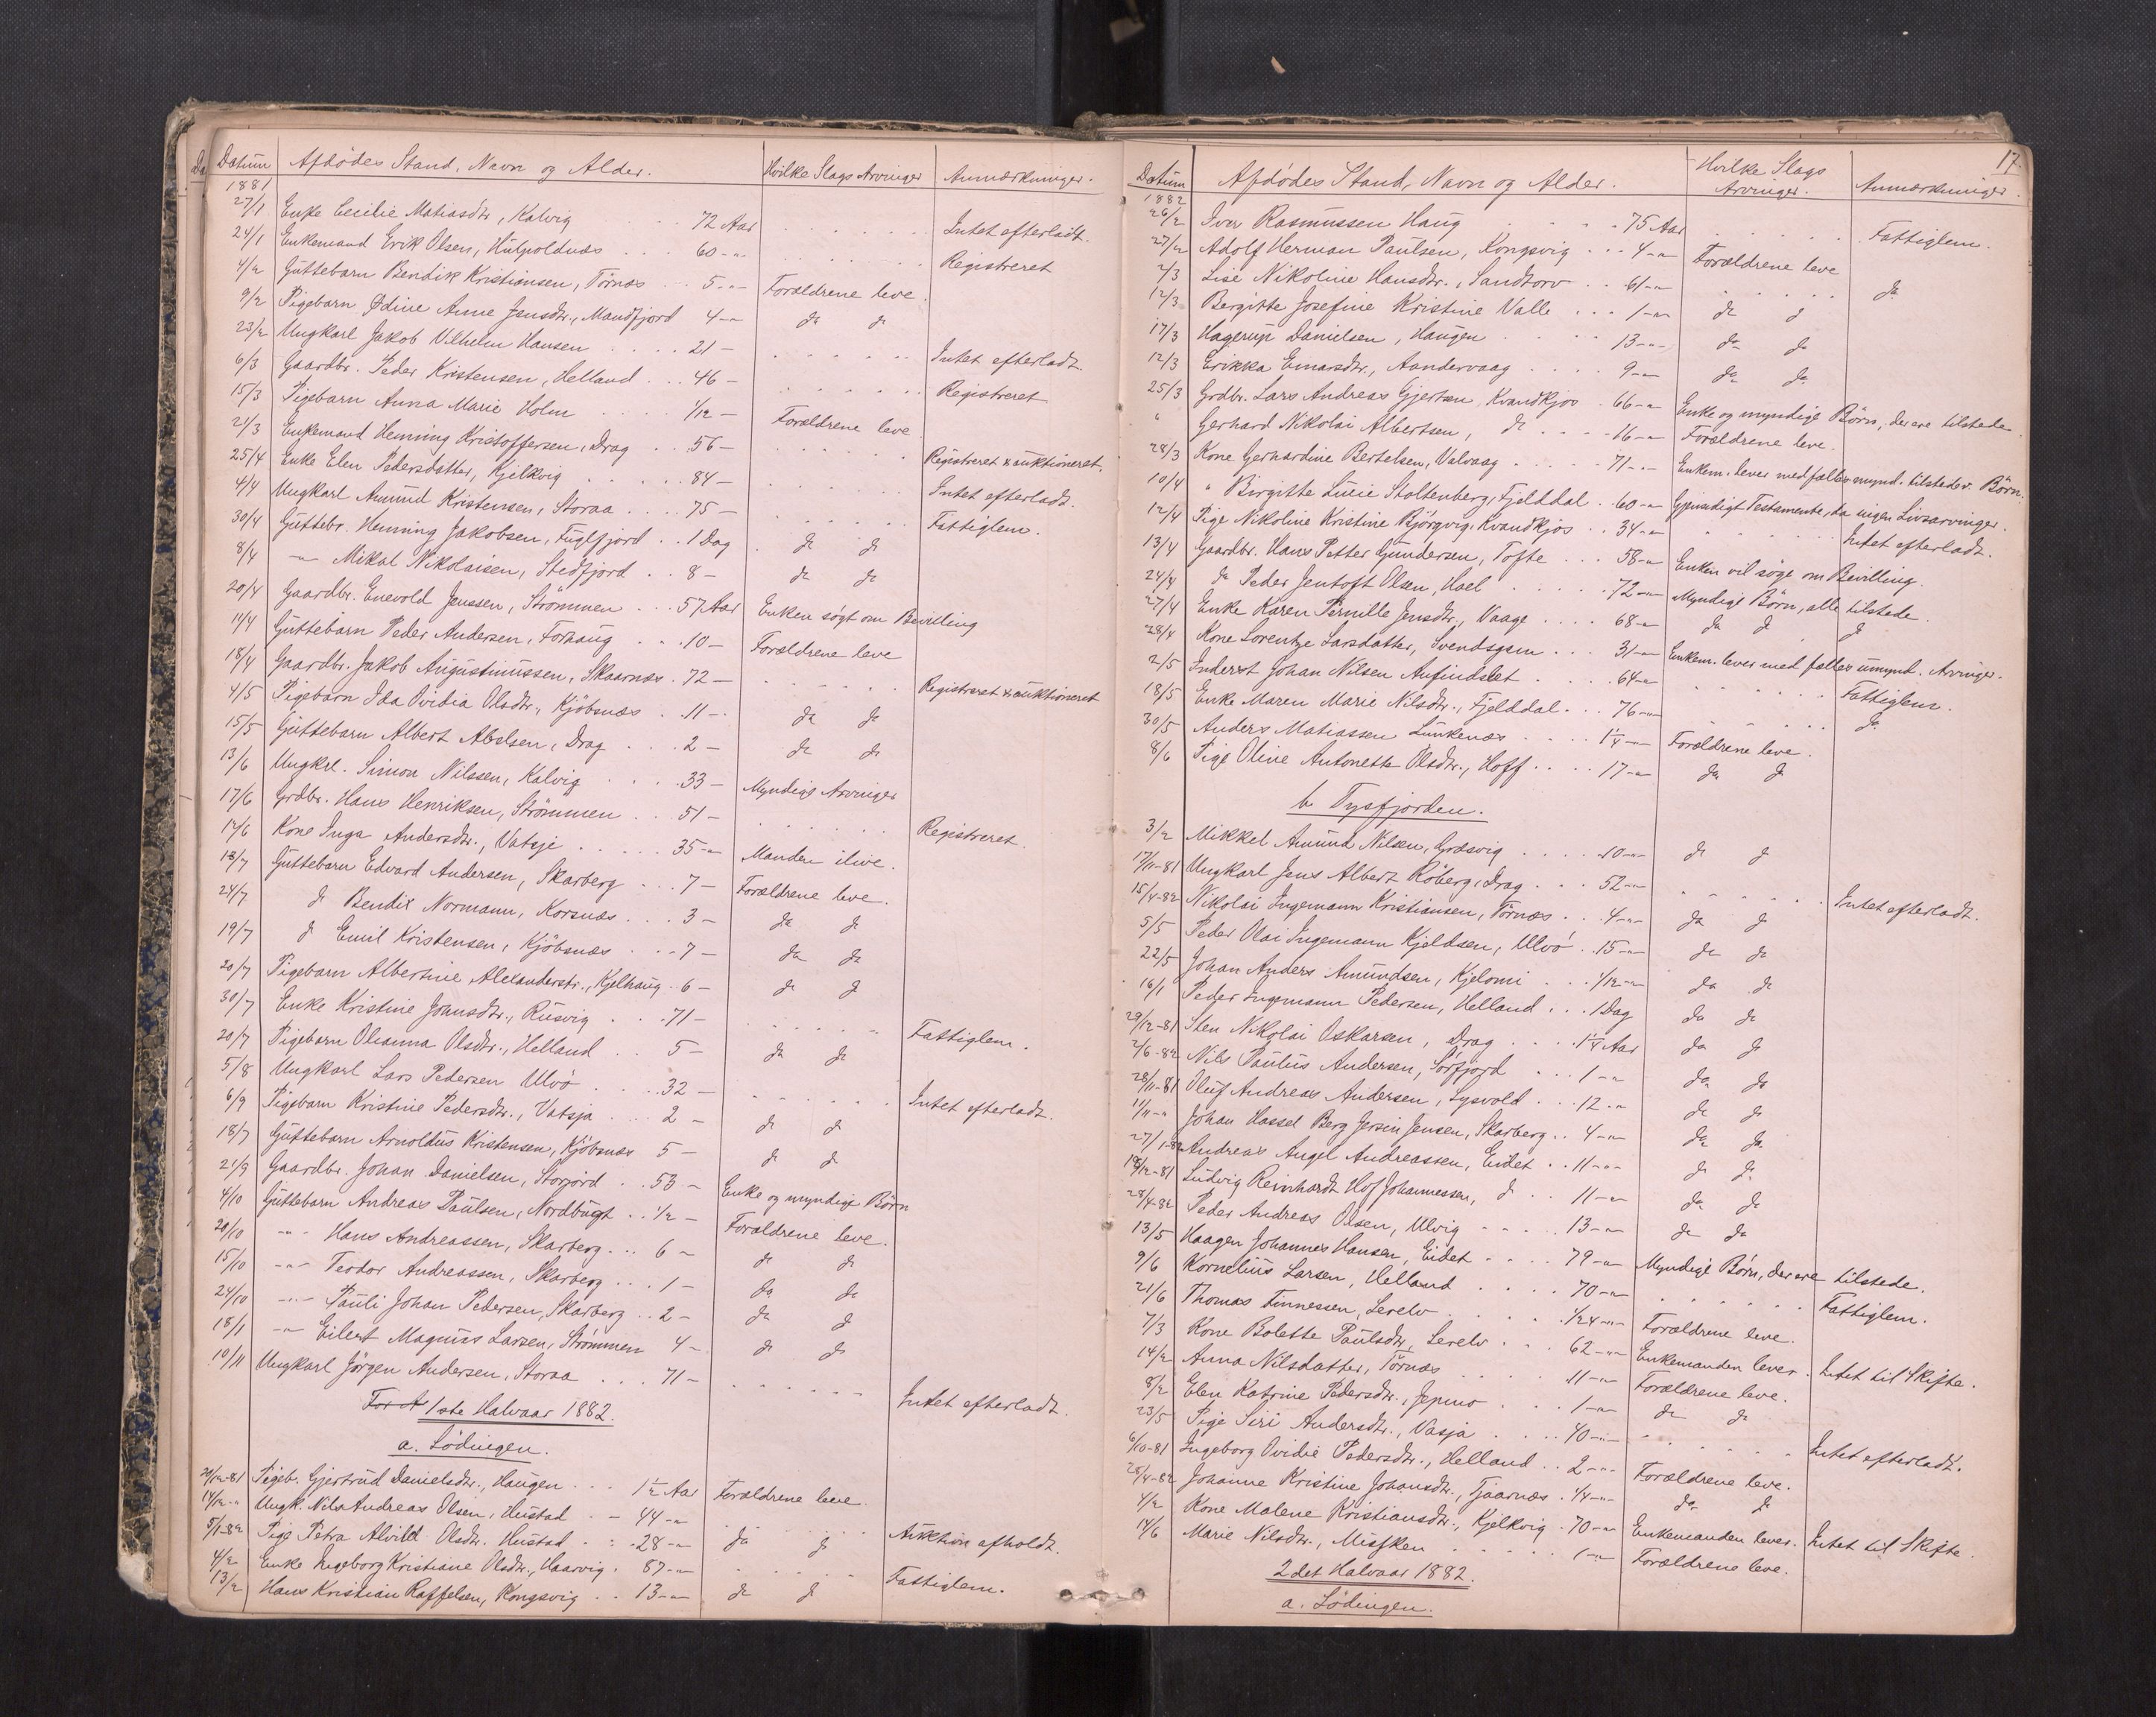 Datum Afdödes Stand, Navn og Alder. Hvilke Slags Arvinger Anmærkninger.
1881
27/1 Enke Cecilie Matiasdtr, Kalvig 72 Aar Intet efterladt.
24/1 Enkemand Erik Olsen, Hulpoldnæs 60 -"- Registreret
4/2 Guttebarn Bendix Kristiansen, Törnæs 5 -"- Forældrene leve.
9/2 Pigebarn Ødine Anne Jensdtr., Mandfjord 4 -"- do do
23/2 Ungkarl Jakob Vilhelm Hansen 21 - Intet efterladt.
6/3 Gaardbr. Peder Kristensen, Helland 46 - Registreret
15/3 Pigebarn Anna Marie Holm 1/12 - Forældrene leve
24/3 Enkemand Henning Kristoffersen, Drag 56 - Registreret & auktioneret.
25/4 Enke Elen Pedersdatter, Kjelkvig 84 - Intet efterladt.
4/4 Ungkarl Amund Kristensen, Storaa 75 - Fattiglem.
30/4 Guttebr. Henning Jakobsen, Fuglfjord 1 Dag do do
8/4 -"- Mikal Nikolaisen, Stedfjord 8 - do do
20/4 Gaardbr. Enevold Jenssen, Strömmen 57 Aar Enken sögt om Bevilling
14/4 Guttebarn Peder Andersen, Forhaug 10 - Forældrene leve
18/4 Gaardbr. Jakob Augustinussen, Skaarnæs 72 - Registreret & auktioneret
4/5 Pigebarn Ida Ovidia Olsdtr., Kjöbsnæs 11 - do do
15/5 Guttebarn Albert Abelsen, Drag 2 - do do
13/6 Ungkrl. Simon Nilssen, Kalvig 33 - Myndige Arvinger
17/6 Grdbr. Hans Henriksen, Strömmen 51 - Registreret.
17/6 Kone Inga Andersdtr., Vatsje 35 -"- Manden ilive.
18/7 Guttebarn Edvard Andersen, Skarberg 7 - Forældrene leve.
24/7 do Bendix Normann, Korsnæs 3 - do do
19/7 do Emil Kristensen, Kjöbsnæs 7 - do do
20/7 Pigebarn Albertine Alexanderstr., Kjelhaug 6 - do do
30/7 Enke Kristine Joansdtr., Rusvig 71 - Fattiglem.
20/7 Pigebarn Oleanna Olsdtr., Helland 5 - do do
5/8 Ungkarl Lars Pedersen Ulvö 32 - Intet efterladt.
6/9 Pigebarn Kristine Pedersdtr., Vatsja 2 - do do
18/7 Guttebarn Arnoldus Kristensen, Kjöbsnæs 5 - do do
21/9 Gaardbr. Johan Danielsen, Storjord 53 - Enke og myndige Börn
4/10 Guttebarn Andreas Paulsen, Nordbugt 1/2 - Forældrene leve.
20/10 -"- Hans Andreassen, Skarberg 6 - do do
15/10 -"- Teodor Andreassen, Skarberg 1 - do do
24/10 -"- Pauli Johan Pedersen, Skarberg 2 - do do
18/1 -"- Eilert Magnus Larsen, Strömmen 4 - do do
10/11 Ungkarl Jörgen Andersen, Storaa 71 - Intet efterladt.
1ste Halvaar 1882.
a. Lödingen.
20/12-81 Pigeb. Gjertrud Danielsdtr., Haugen 1 1/2 Aar Forældrene leve.
14/12 -"- Ungk. Nils Andreas Olsen, Hustad 44 -"- Auktion afholdt.
5/1-82 Pige Petra Alvild Olsdtr. Hustad 28 -"- do do
4/2 Enke Ingeborg Kristiane Olsdtr., Haarvig 87 -"- Fattiglem.
13/2 Hans Kristian Raffelsen, Kongsvig 13 -"- do do
17.
Datum Afdödes Stand, Navn og Alder. Hvilke Slags Arvinger. Anmærkninger.
1882
26/2 Iver Rasmussen Haug 75 Aar Fattiglem.
27/2 Adolf Herman Paulsen, Kongsvig 4 -"- Forældrene leve
2/3 Lise Nikoline Hansdtr., Sandtorv 61 -"- do
12/3 Bergitte Josefine Kristine Valle 1 -"- do do
17/3 Hagerup Danielsen, Haugen 13 -"- do do
12/3 Erikka Einarsdtr., Aandervaag 9 -"- do do
25/3 Grdbr. Lars Andreas Gjertsen, Kvandkjos 66 -"- Enke og myndige Börn, der ere tilstede.
" Gerhard Nikolai Albertsen, do 16 -"- Forældrene leve.
28/3 Kone Gerhardine Bertelsen, Valvaag 71 -"- Enkem. lever med fælles mynd. tilstedev. Börn.
10/4 " Birgitte Lucie Stoltenberg, Fjelddal 60 -"- Gjensidigt Testamente, da ingen Livsarvinger.
12/4 Pige Nikoline Kristine Björgvig, Kvandkjos 34 -"- Intet efterladt.
13/4 Gaardbr. Hans Petter Gundersen, Tofte 58 -"- Enken vil söge om Bevilling.
24/4 do Peder Jentoft Olsen, Hoel 72 -"- Myndige Börn, alle tilstede.
27/4 Enke Karen Pernille Jensdtr., Vaage 68 -"- do do do
28/4 Kone Lorentze Larsdatter, Svendsgam 31 -"- Enkem. lever med fælles umynd. Arvinger.
2/5 Inderst Johan Nilsen Aufindslet 64 -"- Fattiglem.
18/5 Enke Maren Marie Nilsdtr., Fjelddal 76 -"- do
30/5 Anders Matiassen Lunkenæs 1 1/4 -"- Forældrene leve.
8/6 Pige Oline Antonette Olsdtr., Hoff 17 -"- do do
b. Tysfjorden.
3/2 Mikkel Amund Nilsen, Græsvig 10 -"- do do
17/11-81 Ungkarl Jens Albert Röberg, Drag 52 -"- Intet efterladt.
15/4-82 Nikolai Ingemann Kristiansen, Törnæs 4 -"- do do
5/5 Peder Olai Ingemann Kjeldsen, Ulvö 15 -"- do do
22/5 Johan Anders Amundsen, Kjelomi 1/12 -"- do do
16/1 Peder Ingemann Pedersen, Helland 1 Dag do do
29/12-81 Sten Nikolai Oskarsen, Drag 1 1/4 Aar do do
2/6-82 Nils Paulus Andersen, Sörfjord 1 -"- do do
28/11-81 Oluf Andreas Andersen, Lysvold 12 -"- do do
11/11 -"- Johan Hassel Berg Jersin Jensen, Skarberg 4 -"- do do
27/1-82 Andreas Angel Andreassen, Eidet 11 -"- do do
18/12-81 Ludvig Reinhardt Hof Johannessen, do 11 -"- do do
28/4-82 Peder Andreas Olsen, Ulvig 13 -"- do do
13/5 Haagen Johannes Hansen, Eidet 79 -"- Myndige Börn, der ere tilstede.
9/6 Kornelius Larsen, Helland 70 -"- Fattiglem.
21/6 Thomas Finnessen, Lerelv 1/24 -"- Forældrene leve.
7/3 Kone Bolette Paulsdtr, Lerelv 62 -"- Enkemanden lever. Intet til Skifte.
14/2 Anna Nilsdatter, Törnæs 11 -"- Forældrene leve.
8/2 Elen Katrine Pedersdtr., Jepmo 1 -"- do do
23/5 Pige Siri Andersdtr., Vasja 40 -"- Intet efterladt.
6/10-81 Ingeborg Ovidie Pedersdtr., Helland 2 -"- Forældrene leve.
28/4-82 Johanne Kristine Johansdtr., Tjaarnæs 1/4 -"- do do
4/2 Kone Malene Kristiansdtr., Kjelkvig 70 -"- Enkemanden lever. Intet til Skifte.
14/6 Marie Nilsdtr., Misfken 1 -"- Forældrene leve.
2det Halvaar 1882.
a. Lödingen.